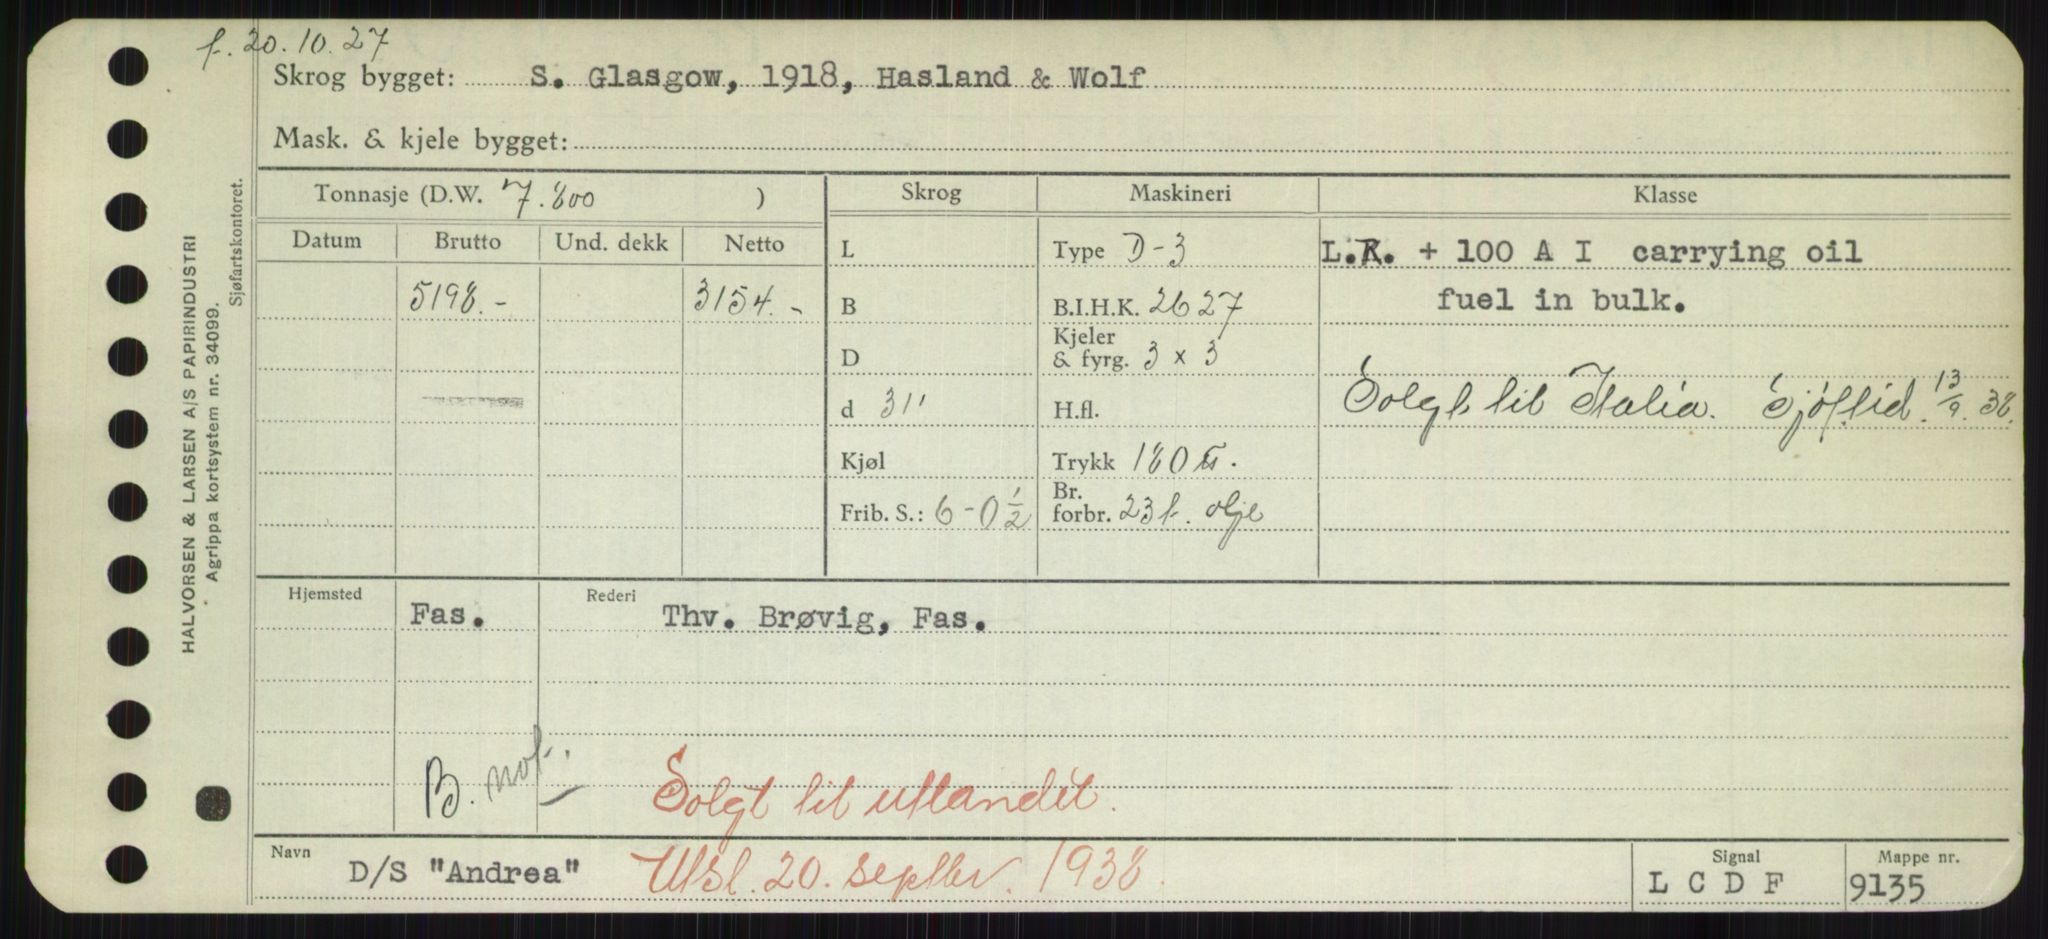 f. 20.10.27
Skrog bygget: S. Glasgow, 1918, Hasland & Wolf
Mask. & kjele bygget:
HALVORSEN & LARSEN A/S PAPIRINDUSTRI
Agrippa kortsystem nr. 34099.
Sjøfartskontoret.
Tonnasje (D.W. 7.800 )
Skrog
Maskineri
Klasse
Datum Brutto Und. dekk Netto
5198.- 3154.-
L
B
D
d 31"
Kjøl
Frib. S.: 6-0½
Type D-3
B.I.H.K. 2627
Kjeler
& fyrg. 3 x 3
H.fl.
Trykk 180
Br.
forbr. 23 t. olje
L.R. + 100 A I carrying oil
fuel in bulk.
Solgt til Italia. Sjøftid. 13/9. 38.
Hjemsted Fas. Rederi Thv. Brøvig, Fas.
B. not.
Solgt til utlandet.
Navn D/S "Andrea" Utsl. 20. septbr. 1938.
Signal
L C D F
Mappe nr.
9135